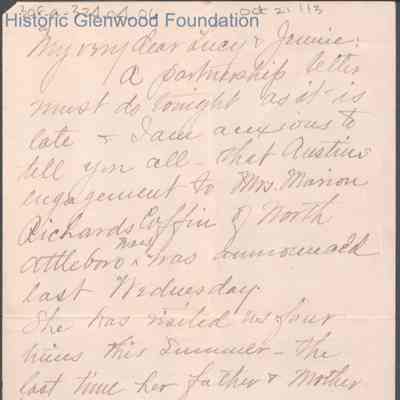 Oct 21/13
Historic Glenwood Foundation
My very dear Lucy & Jennie:
A partnership letter
must do tonight as it is
late & I am anxious to
tell you all - that Austins
engagement to Mrs. Marion
Richards Coffin of North
Attleboro Mass was announced
last Wednesday.
She has visited us four
times this Summer - The
last time her father & Mother